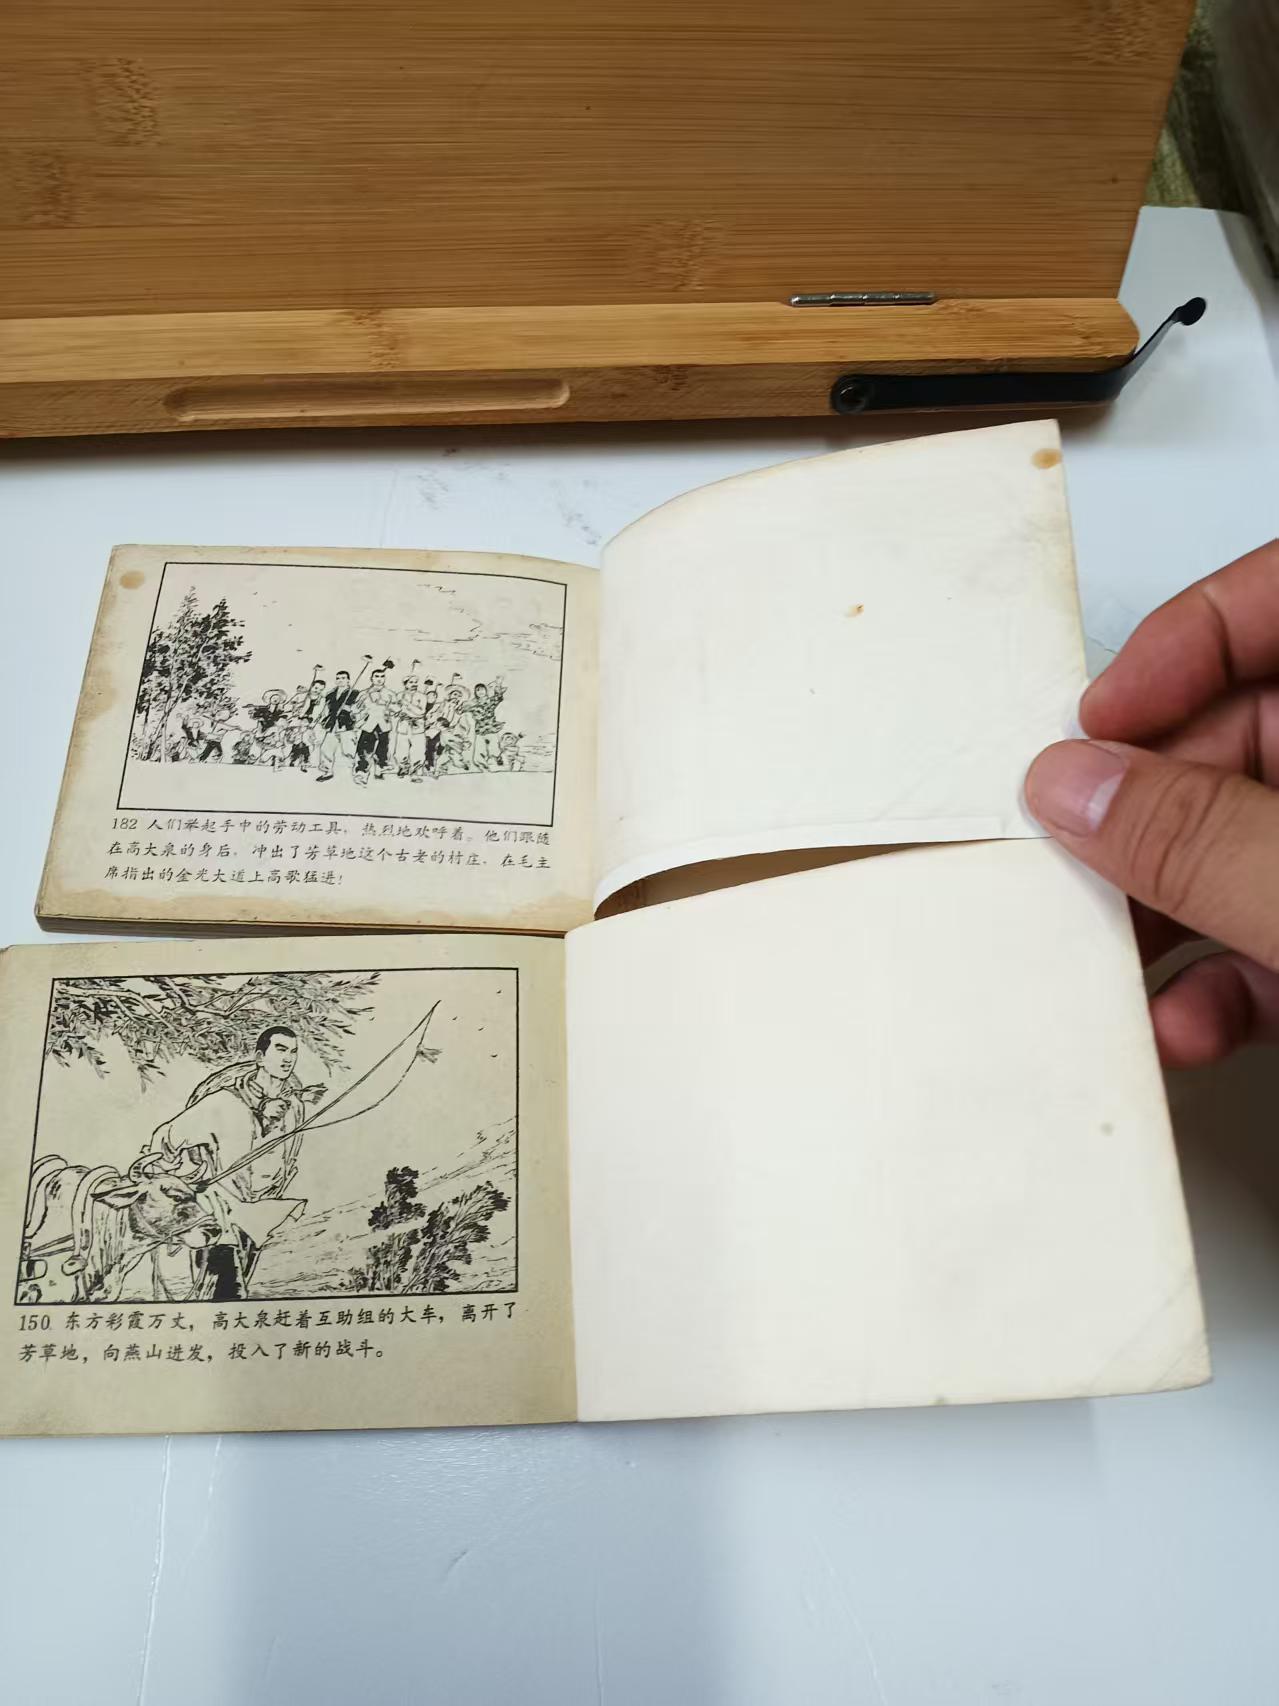 182 人们举起手中的劳动工具，热烈地欢呼着。他们跟随
在高大泉的身后，冲出了芳草地这个古老的村庄，在毛主
席指出的金光大道上高歌猛进！
150. 东方彩霞万丈，高大泉赶着互助组的大车，离开了
芳草地，向燕山进发，投入了新的战斗。